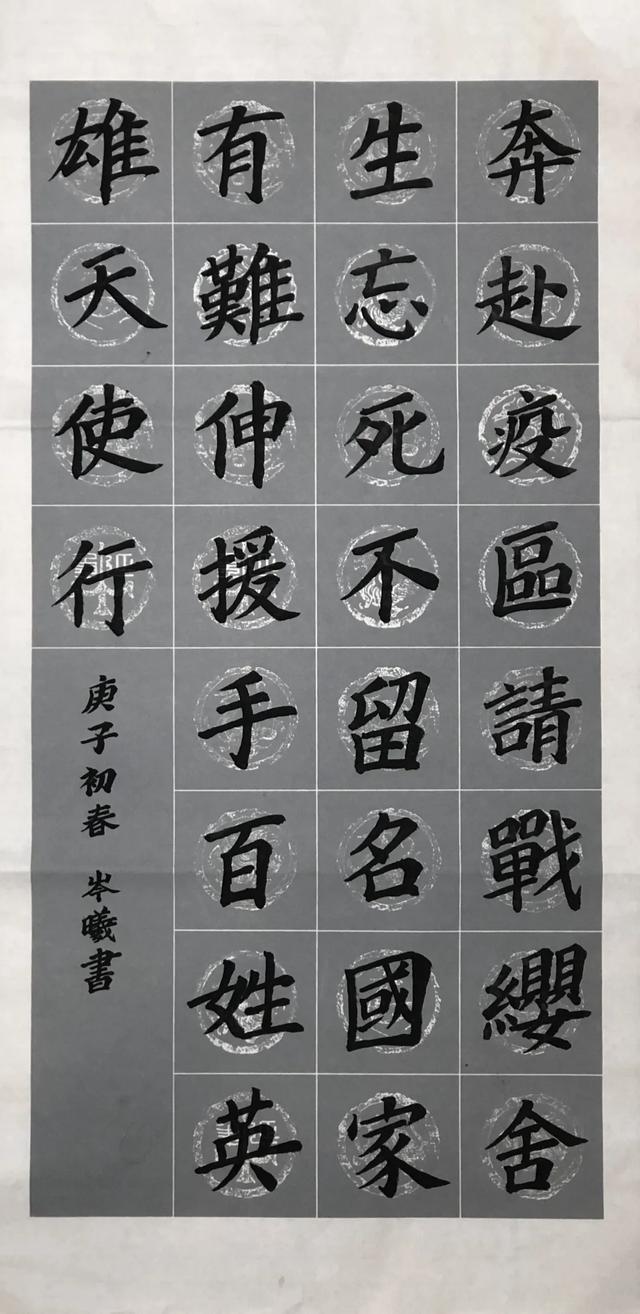 奔赴疫區請戰纓舍
生忘死不留名國家
有難伸援手百姓英
雄天使行
庚子初春 岑曦書